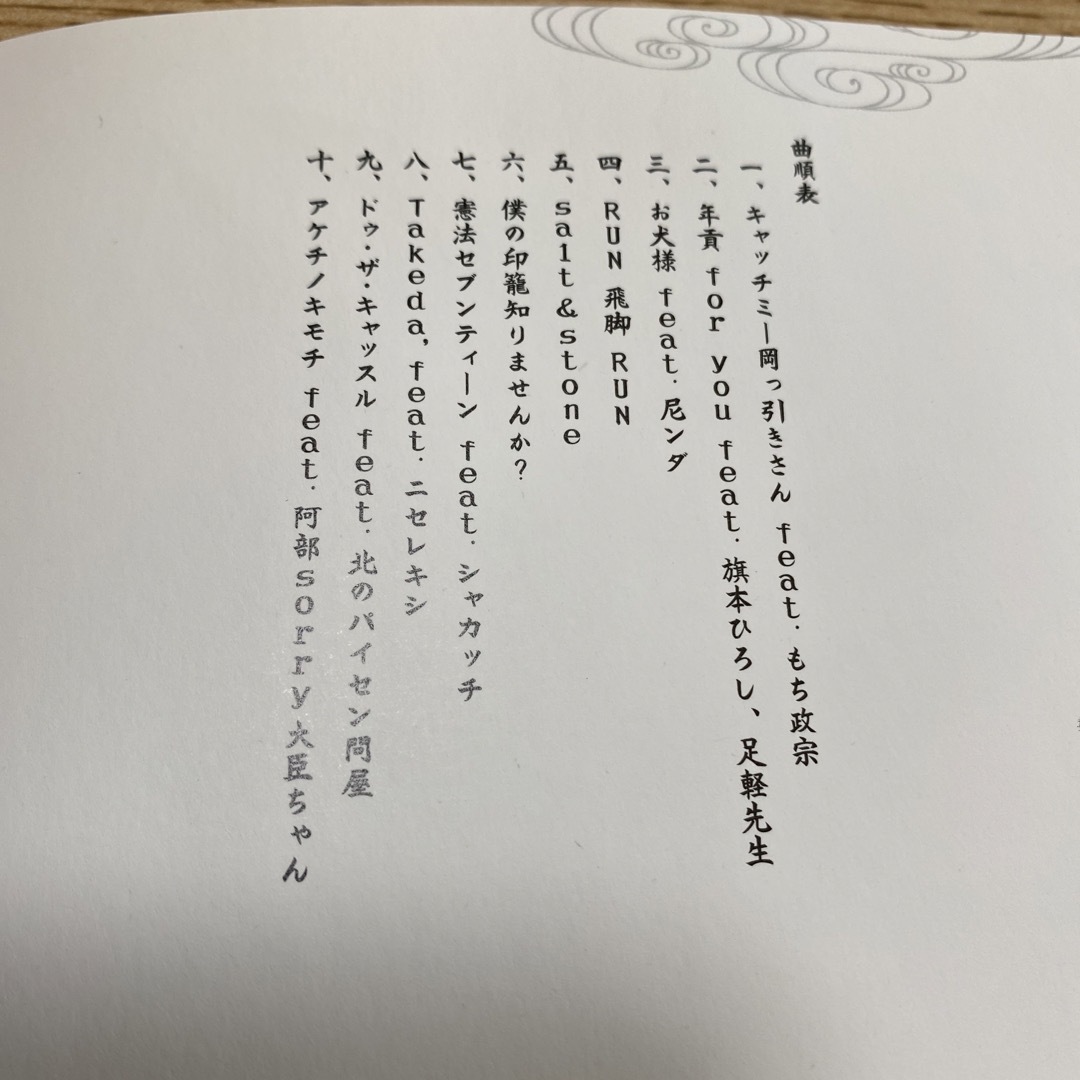 曲順表
一、キャッチミー岡っ引きさん feat. もち政宗
二、年貢 for you feat. 旗本ひろし、足軽先生
三、お犬様 feat. 尼ンダ
四、RUN 飛脚 RUN
五、salt&stone
六、僕の印籠知りませんか?
七、憲法セブンティーン feat. シャカッチ
八、Takeda, feat. ニセレキシ
九、ドゥ・ザ・キャッスル feat. 北のパイセン問屋
十、アケチノキモチ feat. 阿部sorry大臣ちゃん